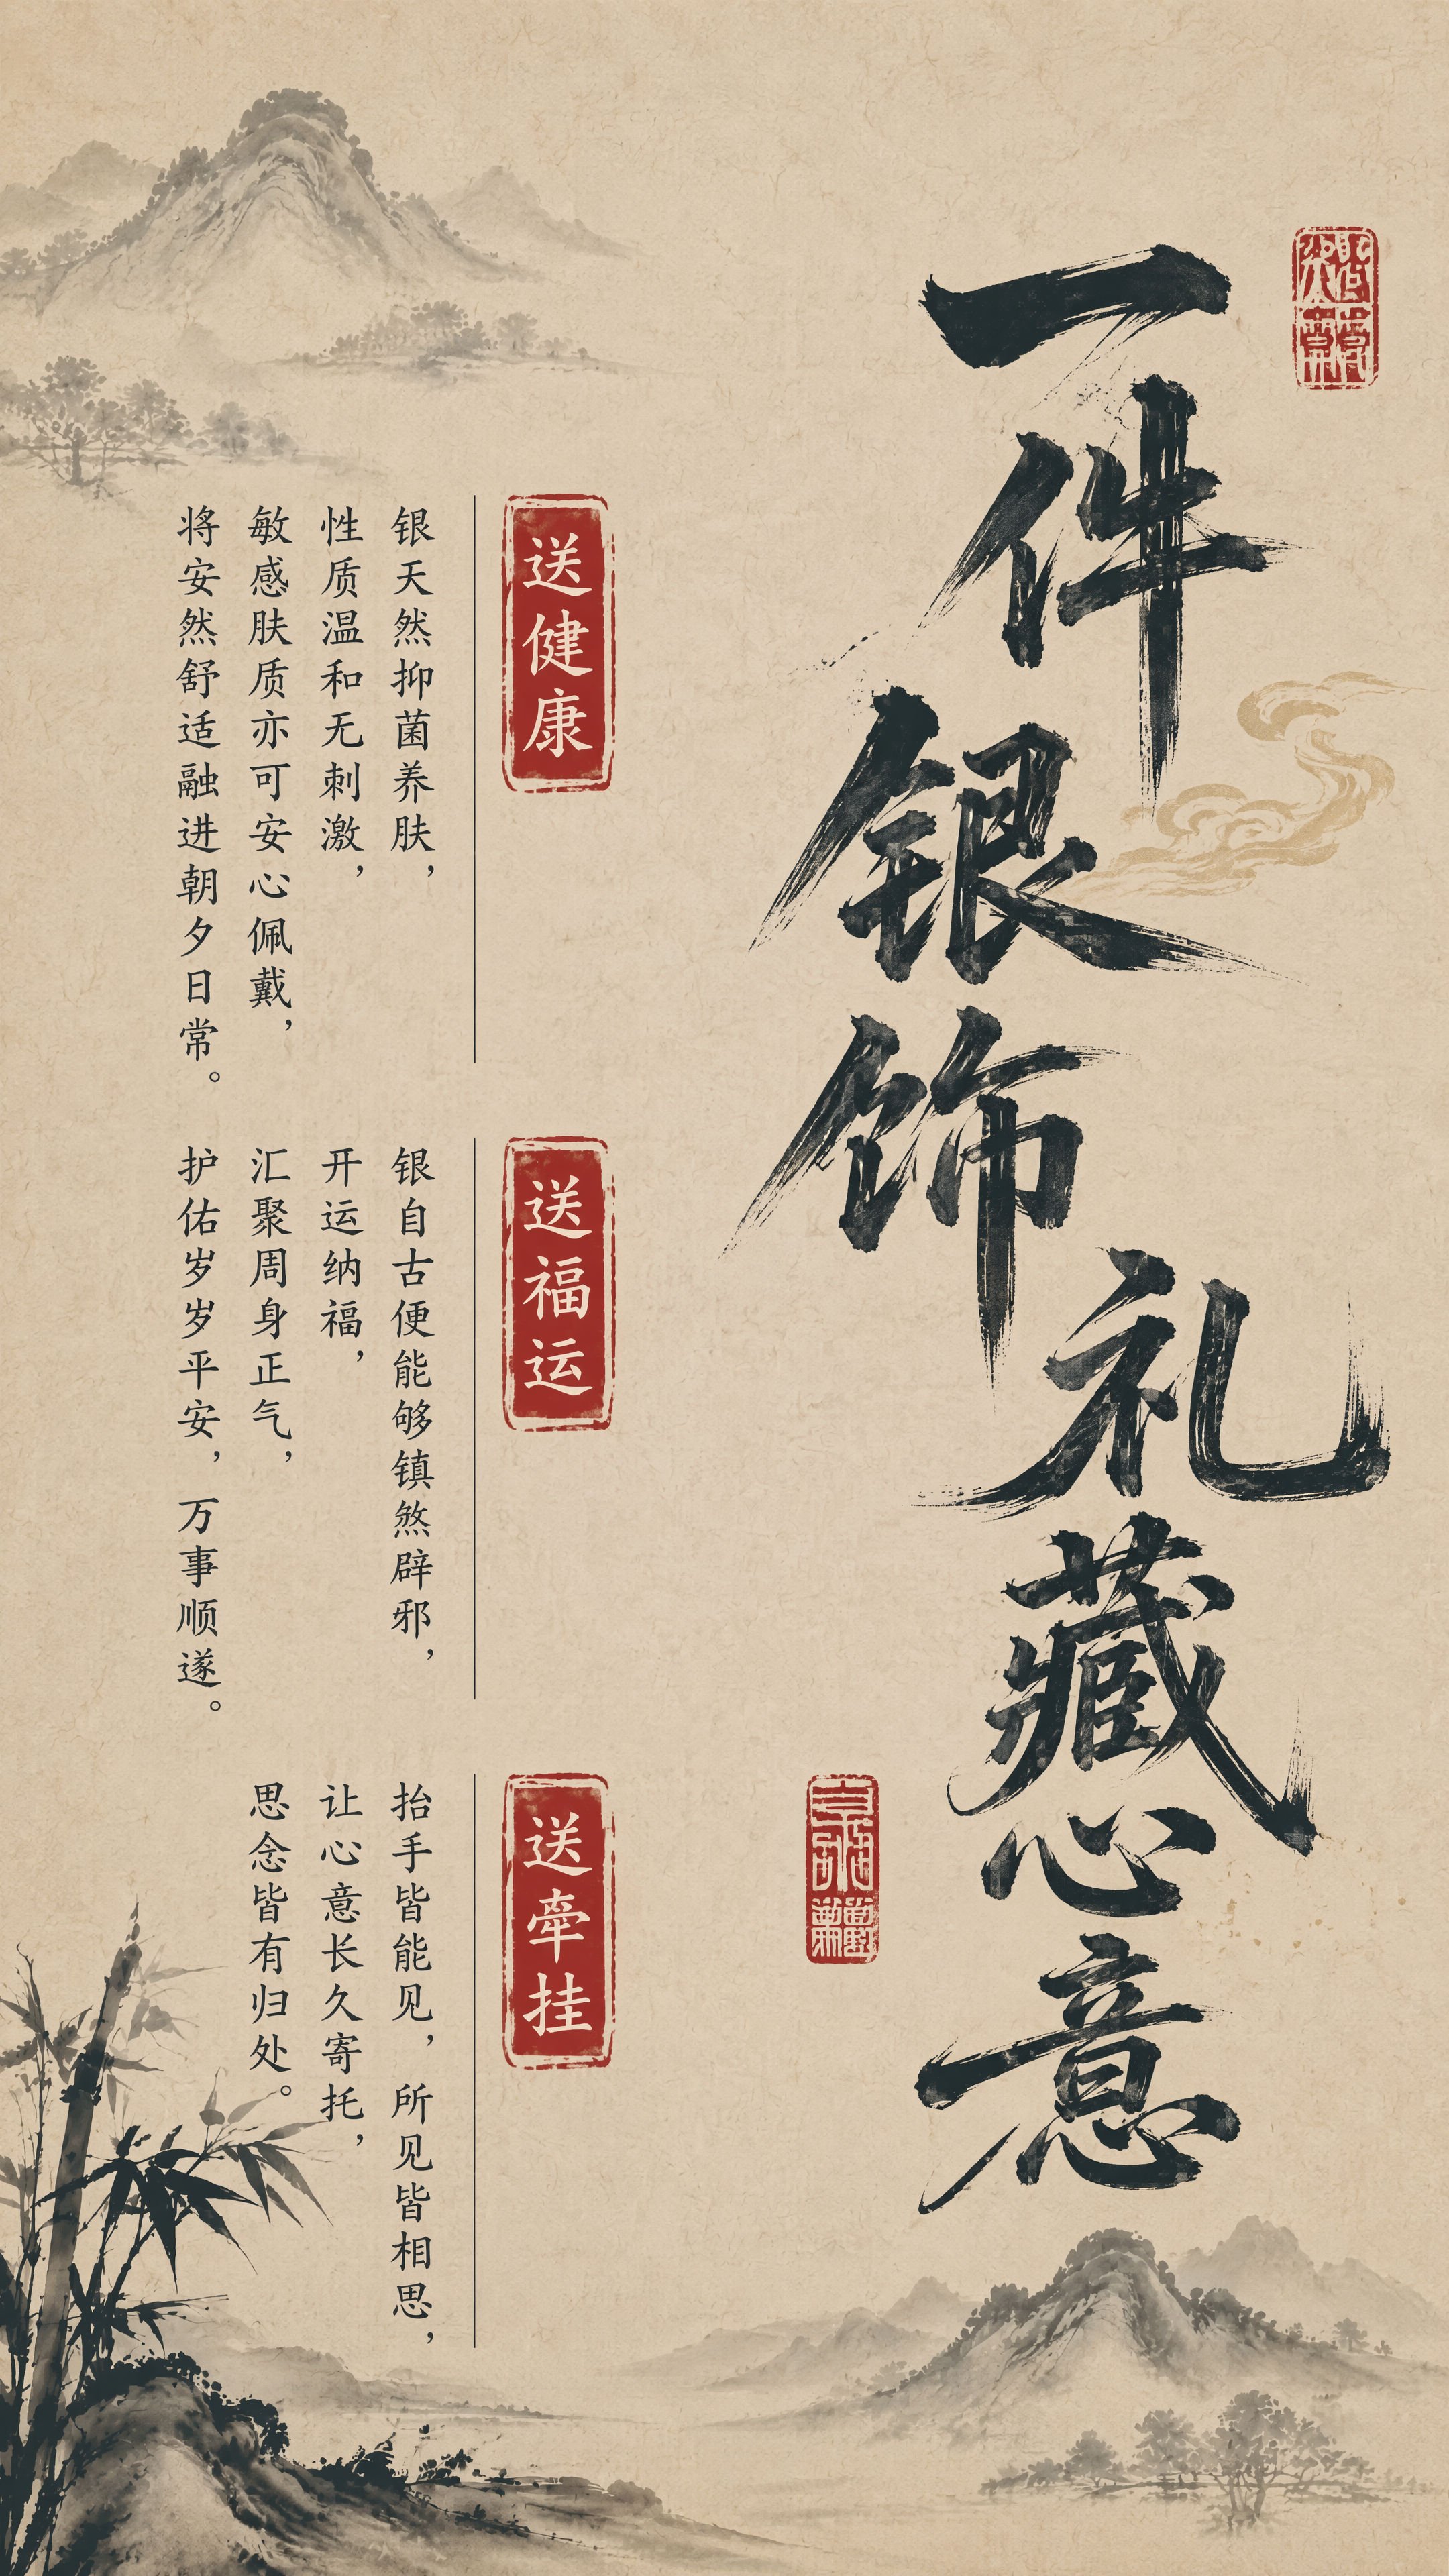 一件银饰礼藏心意
送健康
银天然抑菌养肤，
性质温和无刺激，
敏感肤质亦可安心佩戴，
将安然舒适融进朝夕日常。
送福运
银自古便能够镇煞辟邪，
开运纳福，
汇聚周身正气，
护佑岁岁平安，万事顺遂。
送牵挂
抬手皆能见，所见皆相思，
让心意长久寄托，
思念皆有归处。